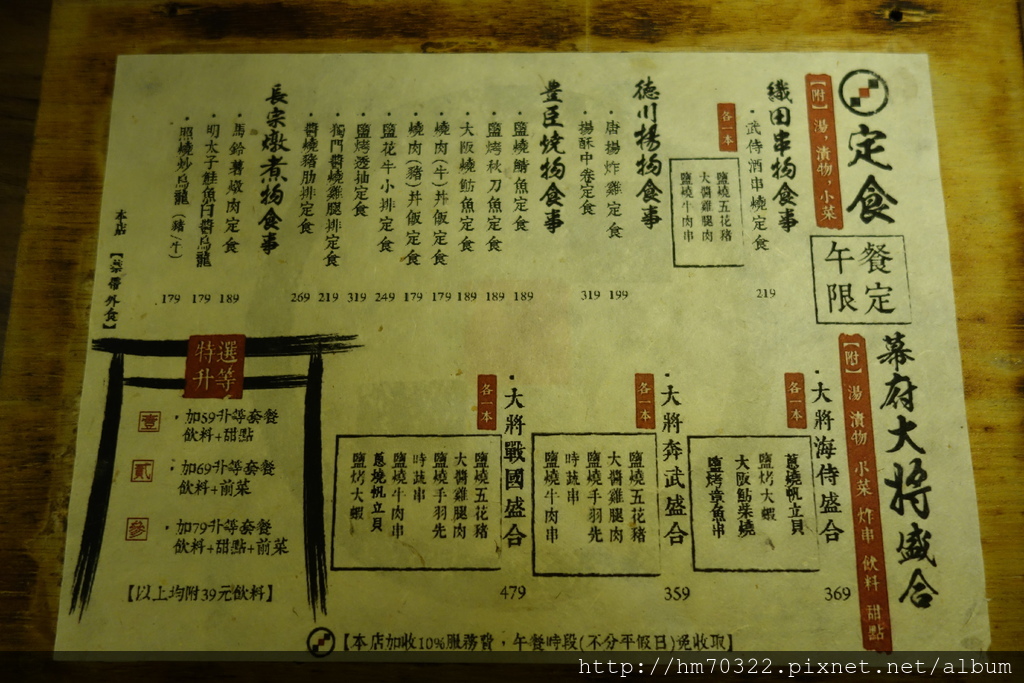 定食
【附】湯,漬物,小菜
午餐限定
織田串物食事
・武侍酒串燒定食 219
各一本
鹽燒五花豬
大醬雞腿肉
鹽燒牛肉串
德川揚物食事
・唐揚炸雞定食 199
・揚酥中卷定食 319
豊臣燒物食事
・鹽燒鯖魚定食 189
・鹽烤秋刀魚定食 189
・大阪燒魴魚定食 189
・燒肉(牛)丼飯定食 179
・燒肉(豬)丼飯定食 179
・鹽花牛小排定食 249
・鹽烤透抽定食 319
・獨門醬燒雞腿排定食 219
・醬燒豬肋排定食 269
長宗燉煮物食事
・馬鈴薯燉肉定食 189
・明太子鮭魚白醬烏龍 179
・照燒炒烏龍(豬/牛) 179
本店【禁帶外食】
幕府大將盛合
【附】湯 漬物 小菜 炸串 飲料 甜點
・大將海侍盛合 369
各一本
蔥燒帆立貝
鹽烤大蝦
大阪魴柴燒
鹽烤章魚串
・大將奔武盛合 359
各一本
鹽燒五花豬
大醬雞腿肉
鹽燒手羽先
時蔬串
鹽燒牛肉串
・大將戰國盛合 479
各一本
鹽燒五花豬
大醬雞腿肉
鹽燒手羽先
時蔬串
鹽燒牛肉串
蔥燒帆立貝
鹽烤大蝦
特選升等
壹 ・加59升等套餐
飲料+甜點
貳 ・加69升等套餐
飲料+前菜
參 ・加79升等套餐
飲料+甜點+前菜
【以上均附39元飲料】
【本店加收10%服務費,午餐時段(不分平假日)免收取】
http://hm70322.pixnet.net/album